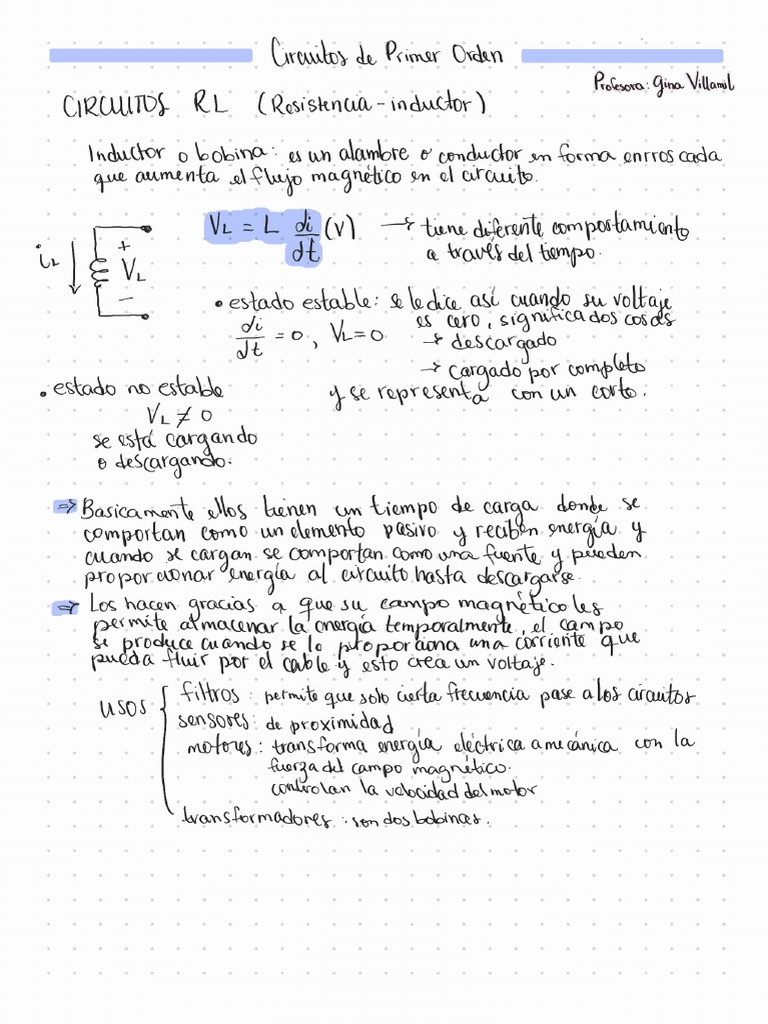 Circuitos de Primer Orden
Profesora: Gina Villamil
CIRCUITOS RL (Resistencia - inductor)
Inductor o bobina: es un alambre o conductor en forma enrroscada
que aumenta el flujo magnético en el circuito.
VL = L di/dt (V) → tiene diferente comportamiento
a través del tiempo.
iL
+
VL
−
• estado estable: se le dice así cuando su voltaje
es cero, significa dos cosas
di/dt = 0, VL = 0
→ descargado
→ cargado por completo
y se representa con un corto.
• estado no estable
VL ≠ 0
se está cargando
o descargando.
⇒ Basicamente ellos tienen un tiempo de carga donde se
comportan como un elemento pasivo y reciben energía y
cuando se cargan se comportan como una fuente y pueden
proporcionar energía al circuito hasta descargarse.
⇒ Los hacen gracias a que su campo magnético les
permite almacenar la energía temporalmente, el campo
se produce cuando se lo proporciona una corriente que
pueda fluir por el cable y esto crea un voltaje.
usos { filtros: permite que solo cierta frecuencia pase a los circuitos
sensores: de proximidad
motores: transforma energía eléctrica a mecánica con la
fuerza del campo magnético.
controlan la velocidad del motor
transformadores: son dos bobinas.